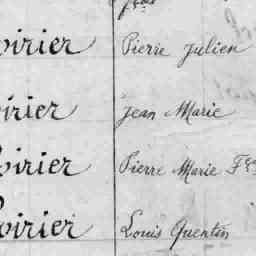 oirier Pierre Julien
oirier Jean Marie
oirier Pierre Marie Fçs
oirier Louis Quentin